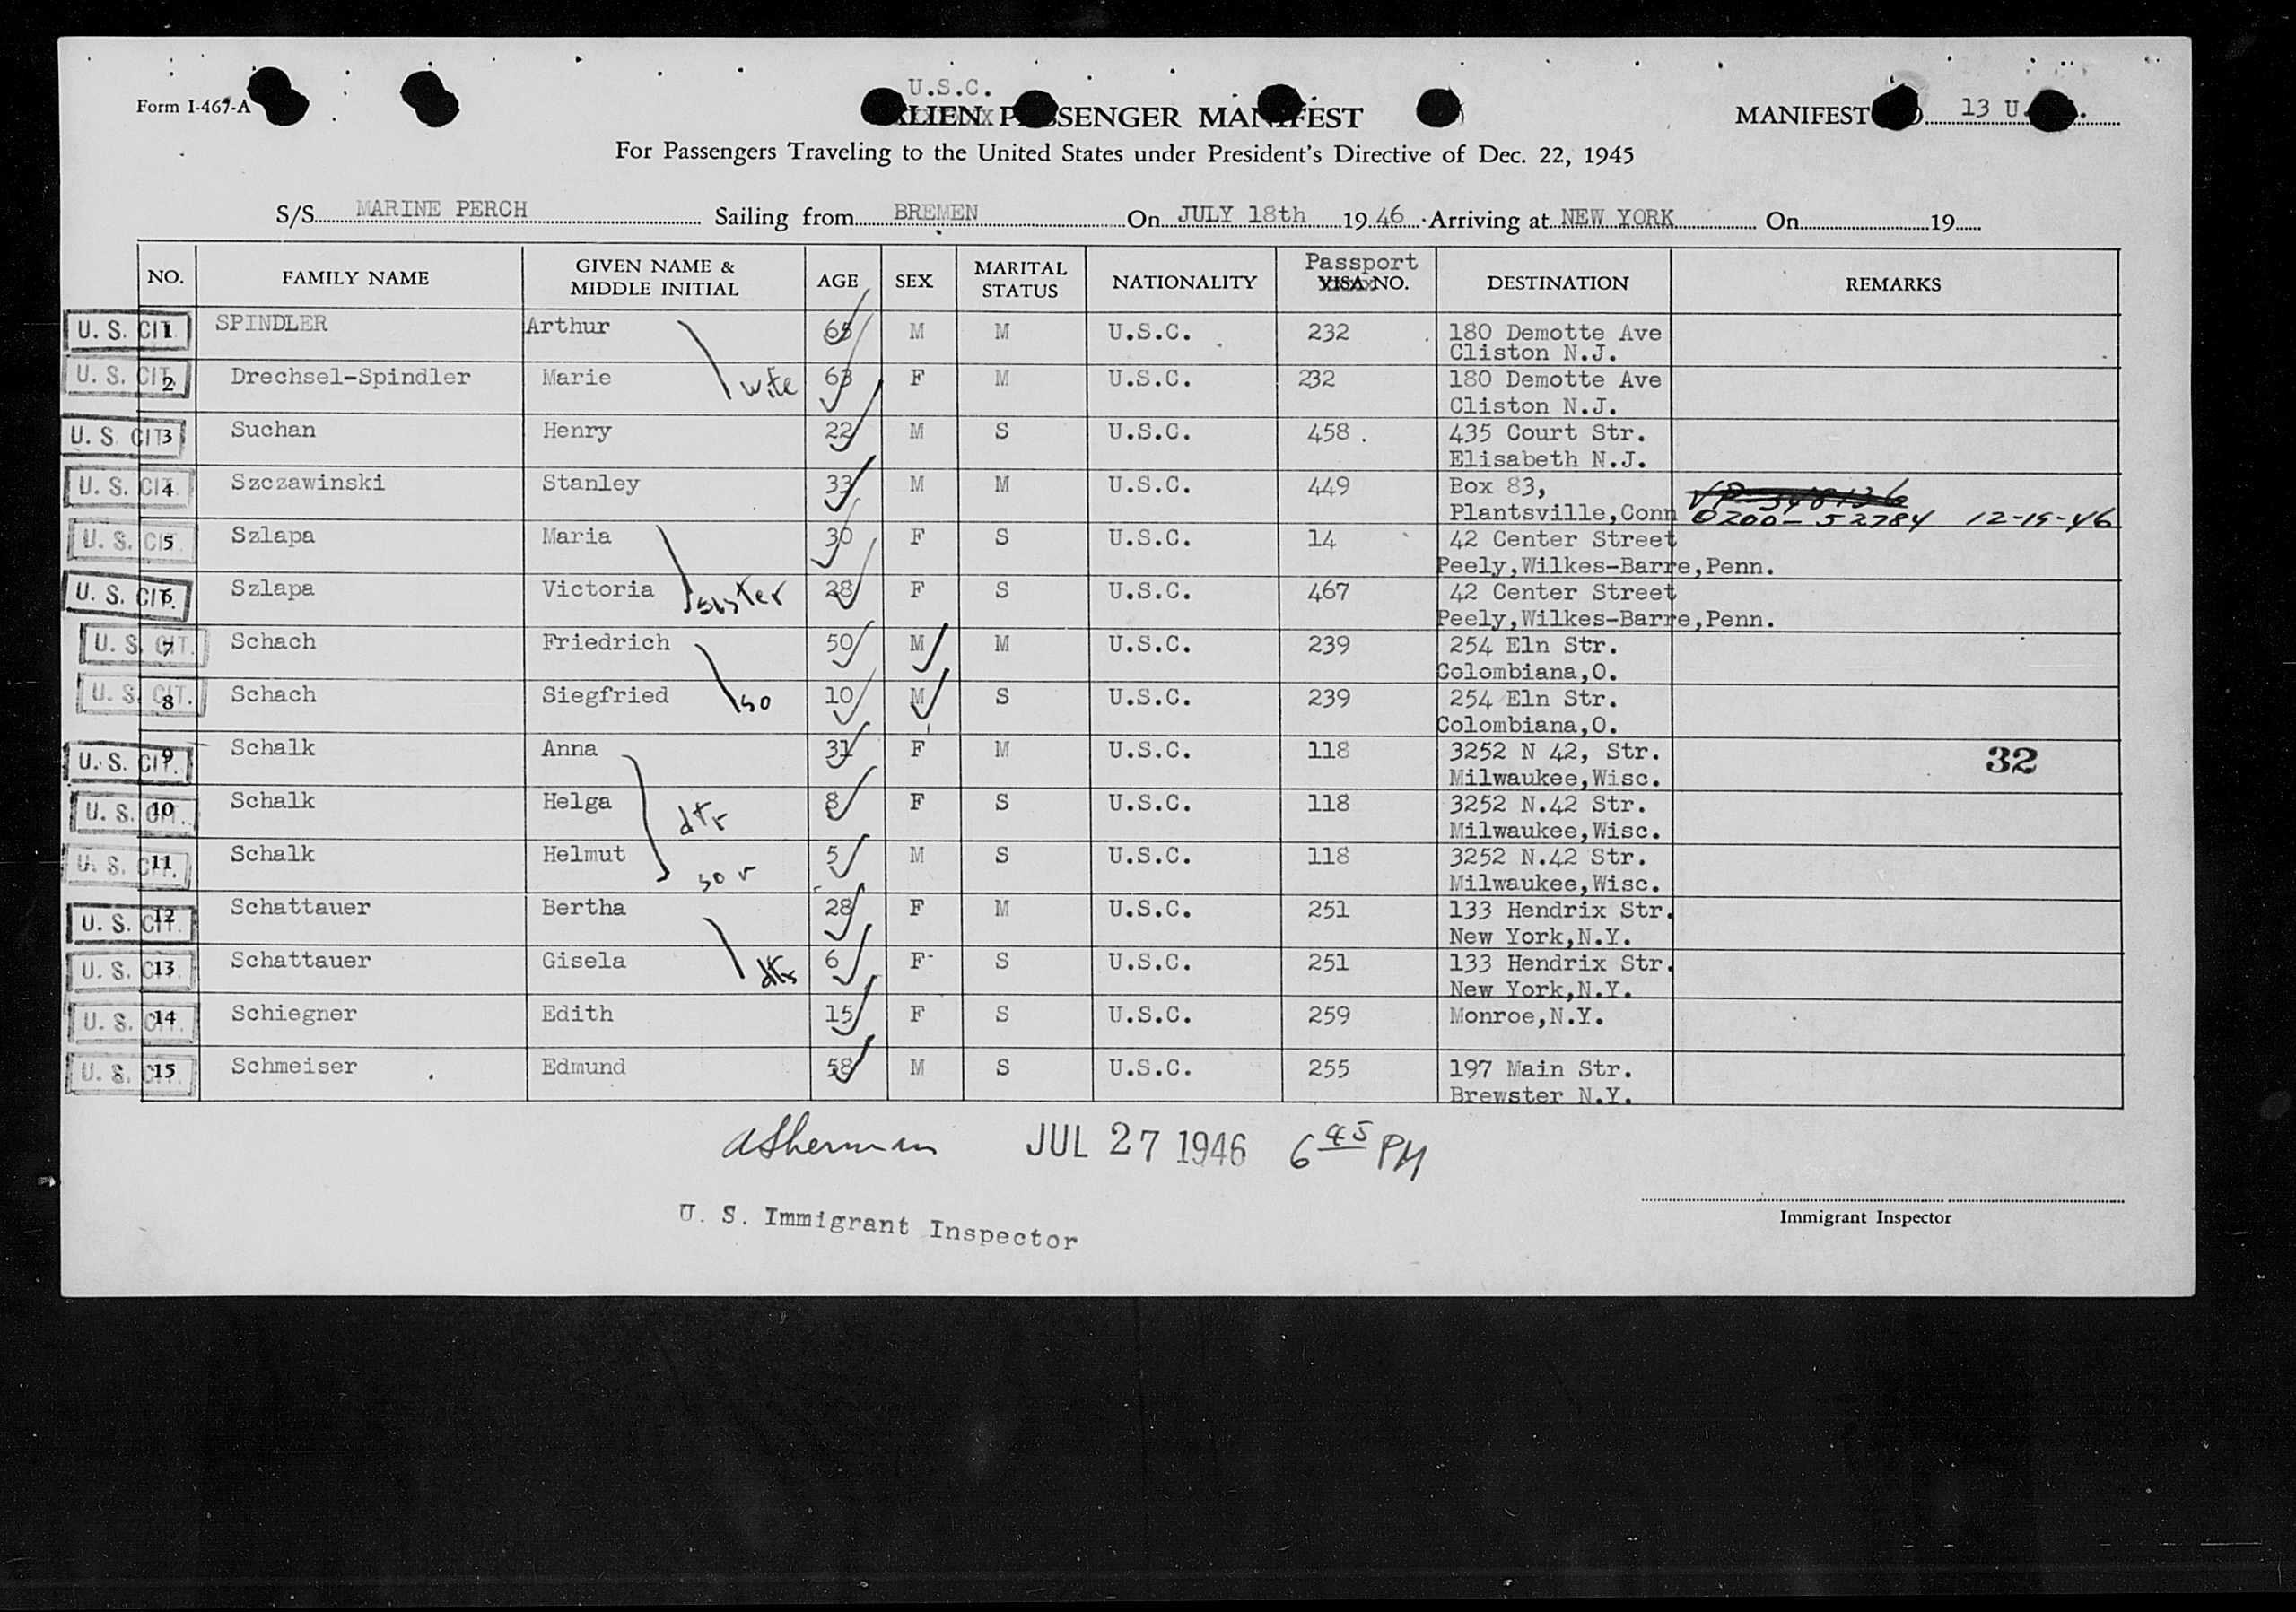 U.S.C.
Form I-467-A
ALIEN PASSENGER MANIFEST
MANIFEST NO. 13 U.
For Passengers Traveling to the United States under President's Directive of Dec. 22, 1945
S/S MARINE PERCH Sailing from BREMEN On JULY 18th 1946 Arriving at NEW YORK On 19
NO. FAMILY NAME GIVEN NAME & MIDDLE INITIAL AGE SEX MARITAL STATUS NATIONALITY Passport VISA NO. DESTINATION REMARKS
U. S. CIT. 1 SPINDLER Arthur 65 M M U.S.C. 232 180 Demotte Ave
Cliston N.J.
U. S. CIT. 2 Drechsel-Spindler Marie wife 63 F M U.S.C. 232 180 Demotte Ave
Cliston N.J.
U. S. CIT. 3 Suchan Henry 22 M S U.S.C. 458 . 435 Court Str.
Elisabeth N.J.
U. S. CIT. 4 Szczawinski Stanley 33 M M U.S.C. 449 Box 83,
Plantsville,Conn 0200-52784 12-19-46
U. S. CIT. 5 Szlapa Maria 30 F S U.S.C. 14 42 Center Street
Peely,Wilkes-Barre,Penn.
U. S. CIT. 6 Szlapa Victoria sister 28 F S U.S.C. 467 42 Center Street
Peely,Wilkes-Barre,Penn.
U. S. CIT. 7 Schach Friedrich 50 M M U.S.C. 239 254 Eln Str.
Colombiana,O.
U. S. CIT. 8 Schach Siegfried so 10 M S U.S.C. 239 254 Eln Str.
Colombiana,O.
U. S. CIT. 9 Schalk Anna 31 F M U.S.C. 118 3252 N 42, Str. 32
Milwaukee,Wisc.
U. S. CIT. 10 Schalk Helga dtr 8 F S U.S.C. 118 3252 N.42 Str.
Milwaukee,Wisc.
U. S. CIT. 11 Schalk Helmut son 5 M S U.S.C. 118 3252 N.42 Str.
Milwaukee,Wisc.
U. S. CIT. 12 Schattauer Bertha 28 F M U.S.C. 251 133 Hendrix Str.
New York,N.Y.
U. S. CIT. 13 Schattauer Gisela dtr 6 F S U.S.C. 251 133 Hendrix Str.
New York,N.Y.
U. S. CIT. 14 Schiegner Edith 15 F S U.S.C. 259 Monroe,N.Y.
U. S. CIT. 15 Schmeiser Edmund 58 M S U.S.C. 255 197 Main Str.
Brewster N.Y.
ASherman JUL 27 1946 6 45 PM
U. S. Immigrant Inspector
Immigrant Inspector